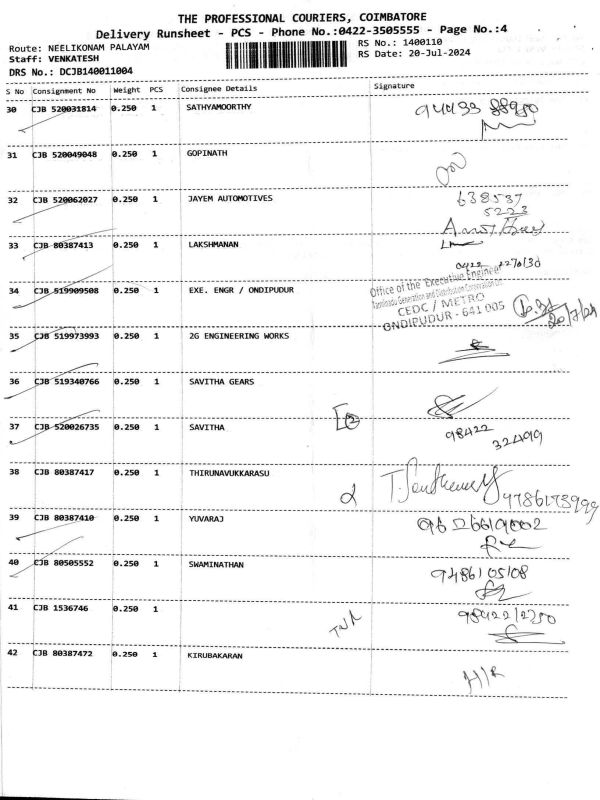 THE PROFESSIONAL COURIERS, COIMBATORE
Delivery Runsheet - PCS - Phone No.:0422-3505555 - Page No.:4
Route: NEELIKONAM PALAYAM RS No.: 1400110
Staff: VENKATESH RS Date: 20-Jul-2024
DRS No.: DCJB140011004
S No Consignment No Weight PCS Consignee Details Signature
30 CJB 520031814 0.250 1 SATHYAMOORTHY 94433 88950
31 CJB 520049048 0.250 1 GOPINATH
32 CJB 520062027 0.250 1 JAYEM AUTOMOTIVES 638537
5223
33 CJB 80387413 0.250 1 LAKSHMANAN
0422 2270130
34 CJB 519909508 0.250 1 EXE. ENGR / ONDIPUDUR Office of the Executive Engineer
Tamilnadu Generation and Distribution Corporation Ltd
CEDC / METRO
ONDIPUDUR - 641 005
20/7/24
35 CJB 519973993 0.250 1 2G ENGINEERING WORKS
36 CJB 519340766 0.250 1 SAVITHA GEARS
37 CJB 520026735 0.250 1 SAVITHA 2 98422
32499
38 CJB 80387417 0.250 1 THIRUNAVUKKARASU 9786173999
39 CJB 80387410 0.250 1 YUVARAJ
40 CJB 80505552 0.250 1 SWAMINATHAN 9486105108
41 CJB 1536746 0.250 1 9842212750
42 CJB 80387472 0.250 1 KIRUBAKARAN